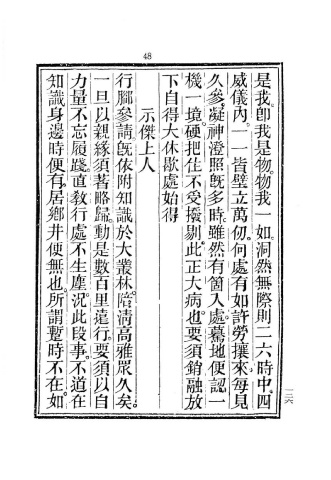 48
是我。卽我是物。物我一如。洞然無際。則二六時中。四
威儀內。一一皆壁立萬仞。何處有如許勞攘來。每見
久參。凝神澄照旣多時。雖然有箇入處。驀地便認一
機一境。硬把住不受撥剔。此正大病也。要須銷融放
下自得大休歇處始得
示傑上人
行腳參請。旣依附知識。於大叢林。陪清高雅眾久矣。
一旦以親緣須著略歸。動是數百里遠行。要須以自
力量。不忘履踐。直敎行處不生塵。況此段事。不道在
知識身邊時便有。居鄉井便無也。所謂暫時不在。如
二六